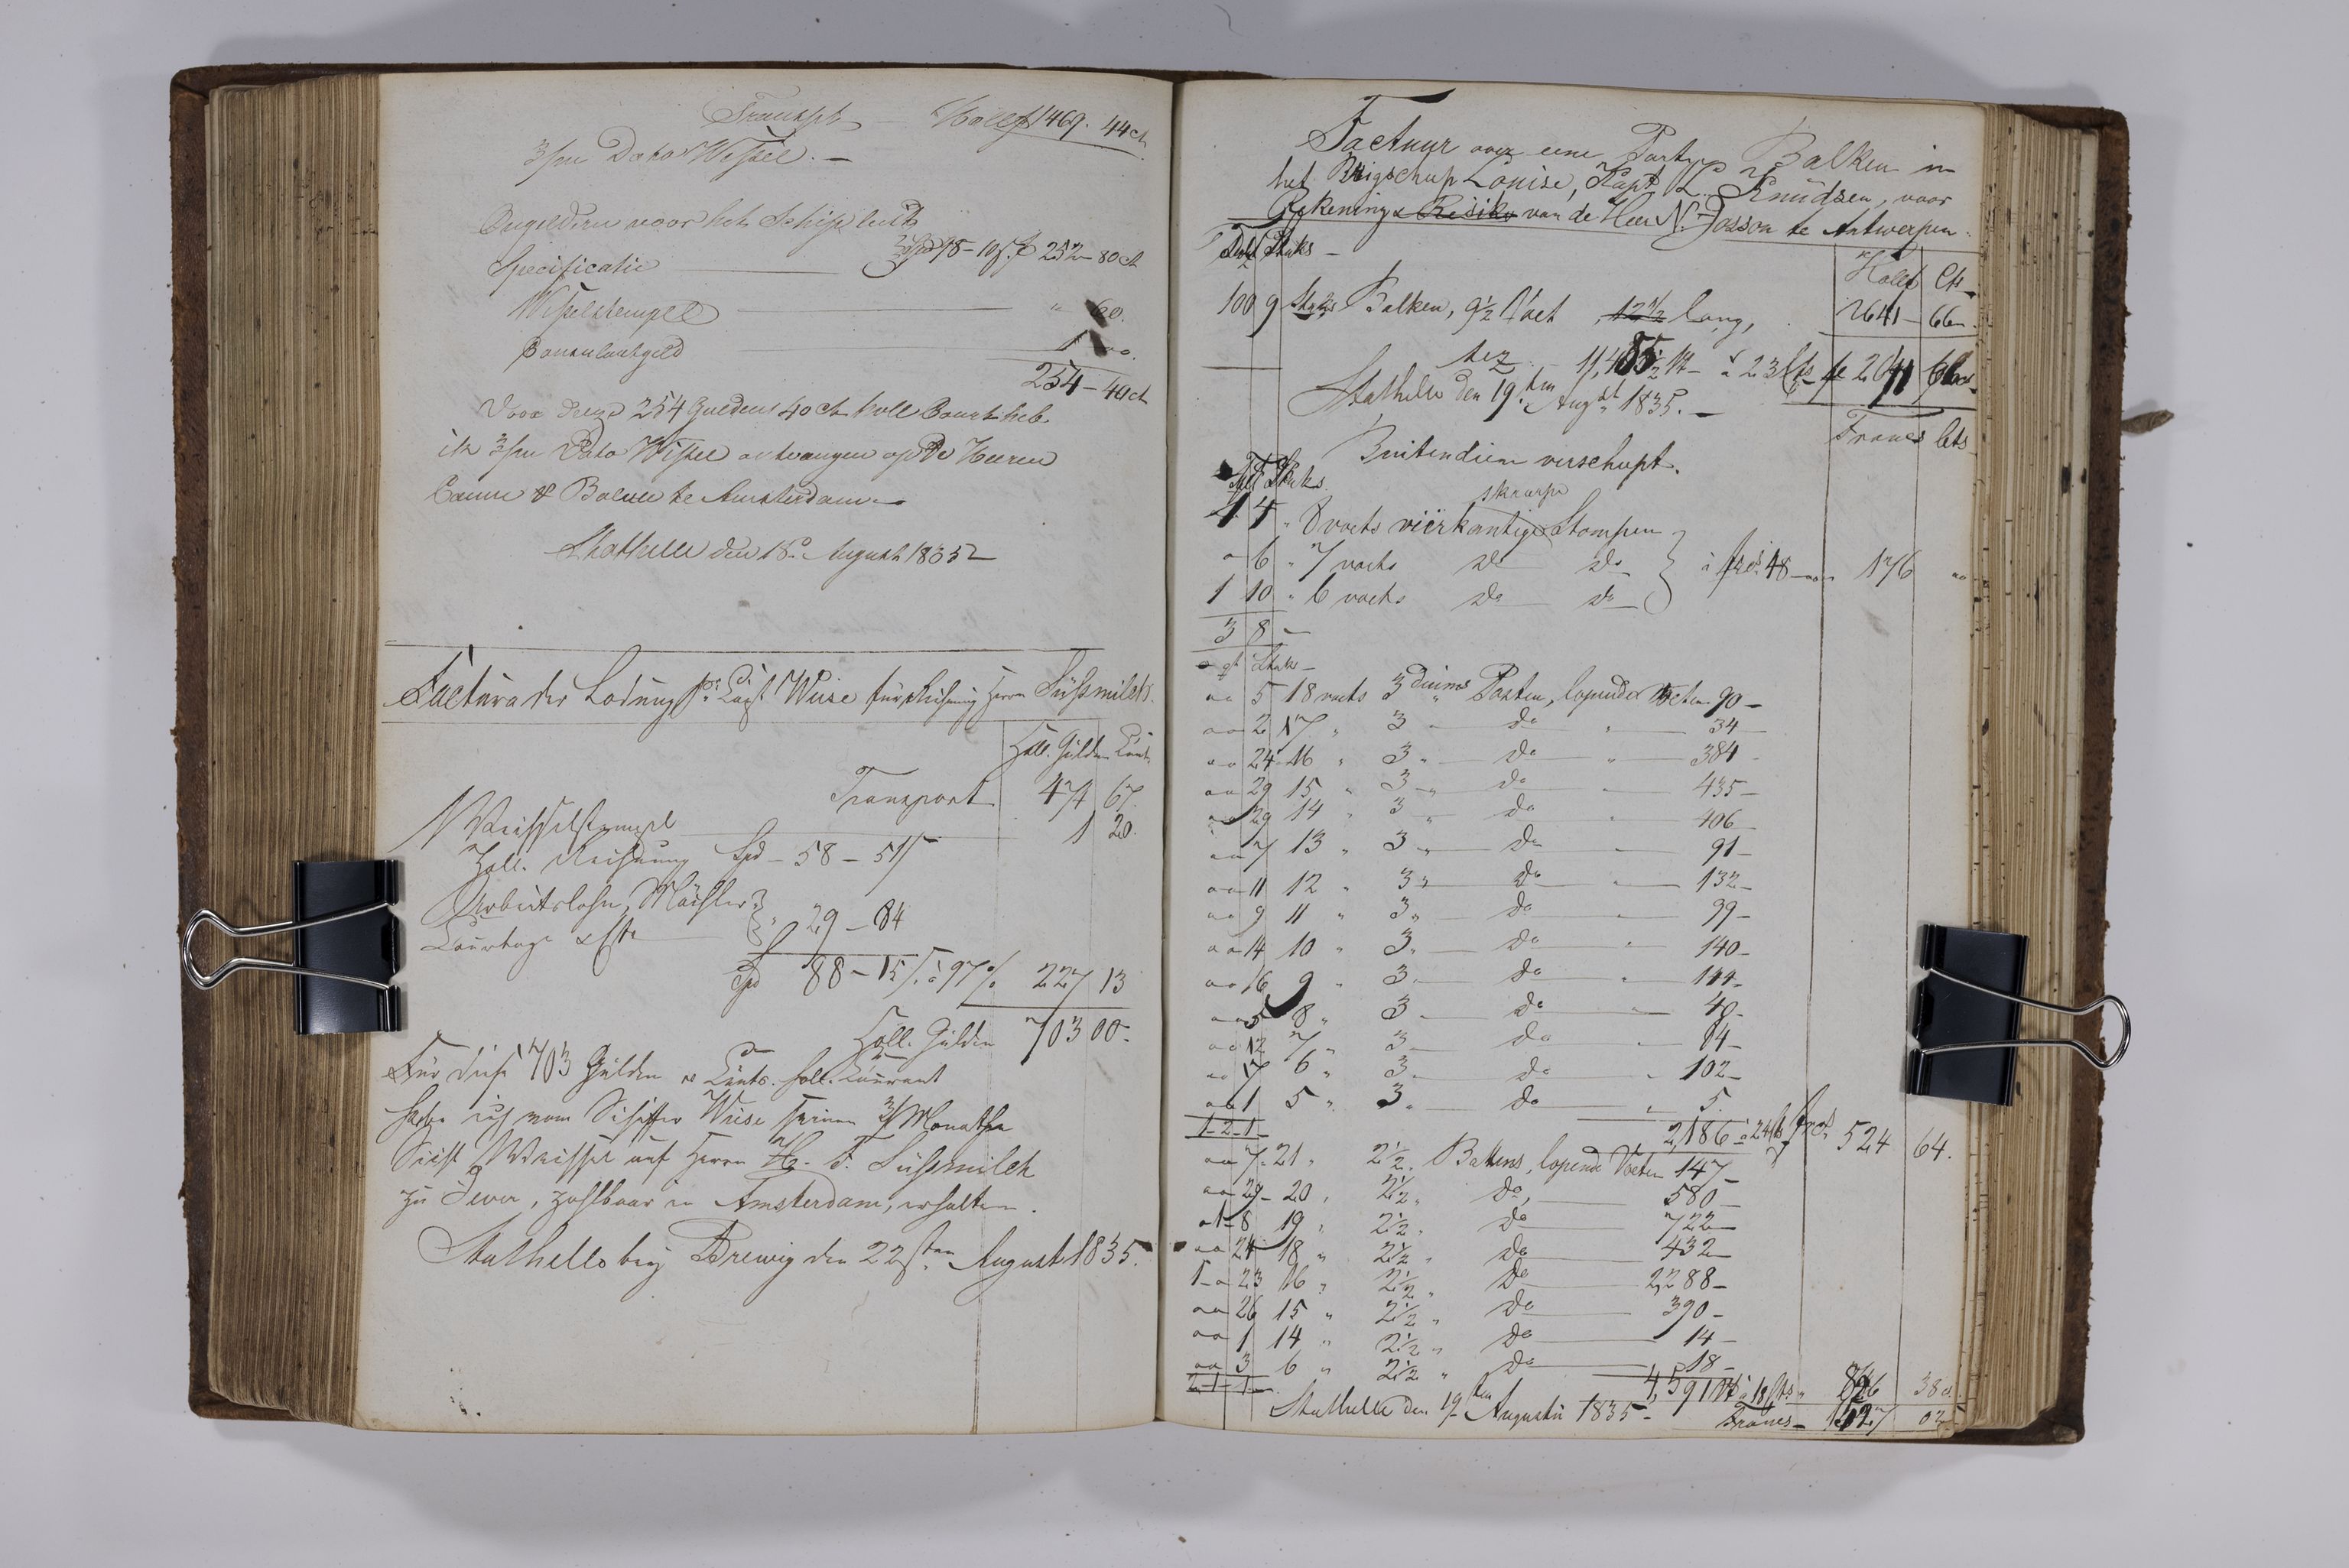 Transpt — Hollf 1469. 44 ct
3/m Dato Wissel. —
Ongelden voor het Schip luit
Specificatie — 98-105. f 252-80 ct
Wisselstempel — " 60.
Consulaatgeld — 1
254-40 ct
Voor deeze 254 Guldens 40 ct Holl Court heb
ik 3/m Dato Wissel ontvangen op De Heeren
& te Amsterdam
Stathelle den 18. August 1835
Factura der Ladung pr Capt Wiese für Rechnung Herrn Süssmilch.
Holl. Gulden Cents
Transport 474 67.
Wechselstempel 1 20.
Holl. Rechnung Spd 58-51
Arbeitslohn, Mäkler
Courtage " 29-84
Spd 88-15 à 97% 227 13
Holl. Gulden 703 00.
Für diese 703 Gulden Cents. holl. Courant
habe ich vom Schiffer Wiese seinen 3/Monathe
Sicht Wechsel auf Herrn H. F. Süssmilch
zu Jever, zahlbaar in Amsterdam, erhalten.
Stathelle bey Brewig den 22sten August 1835.
Factuur over eene Party Balken in
het Brigschip Louise, Kapt L. Knudsen, voor
Rekening & Risiko van de Heer N. Josson te Antwerpen.
Stuks —
Hollf Ct
100 9 Stuks Balken, 9½ Voet 12½ lang, 2641 66
11,485½ Vt à 23 Cts f 2641 66
Stathelle den 19.ten Augst 1835. —
Francs Cts
Buitendien verscheept.
Stuks.
skearpe
1 4 " 8 voets vierkantige Stompen
" 6 " 7 voets do do à frcs. 48 176
1 10 " 6 voets do do
3 8
Stuks
5 18 voets 3 duims Posten, lopende Voeten 90 —
2 17 " 3 " do " 34
24 16 " 3 " do " 384
29 15 " 3 " do 435 —
29 14 " 3 " do " 406
7 13 " 3 " do " 91 —
11 12 " 3 " do " 132 —
9 11 " 3 " do " 99 —
14 10 " 3 " do " 140 —
16 9 " 3 do " 144 —
5 8 " 3 do " 40 —
12 7 " 3 do " 84 —
17 6 " 3 do " 102 —
1 5 " 3 do " 5.
1-2-1 2,186 à 24 Cts frcs 524 64.
7 21 " 2½ Battens, lopende Voeten 147 —
29 20 " 2½ " do 580 —
1-8 19 " 2½ " do 722
24 18 " 2½ " do 432
1 23 16 " 2½ " do 2288 —
26 15 " 2½ " do 390 —
1 14 " 2½ " do 14 —
3 6 " 2½ " do 18 —
2-1-1 4,591 à 18 Cts " 826 38
Stathelle den 19ten Augustii 1835 — Francs — 1527 02